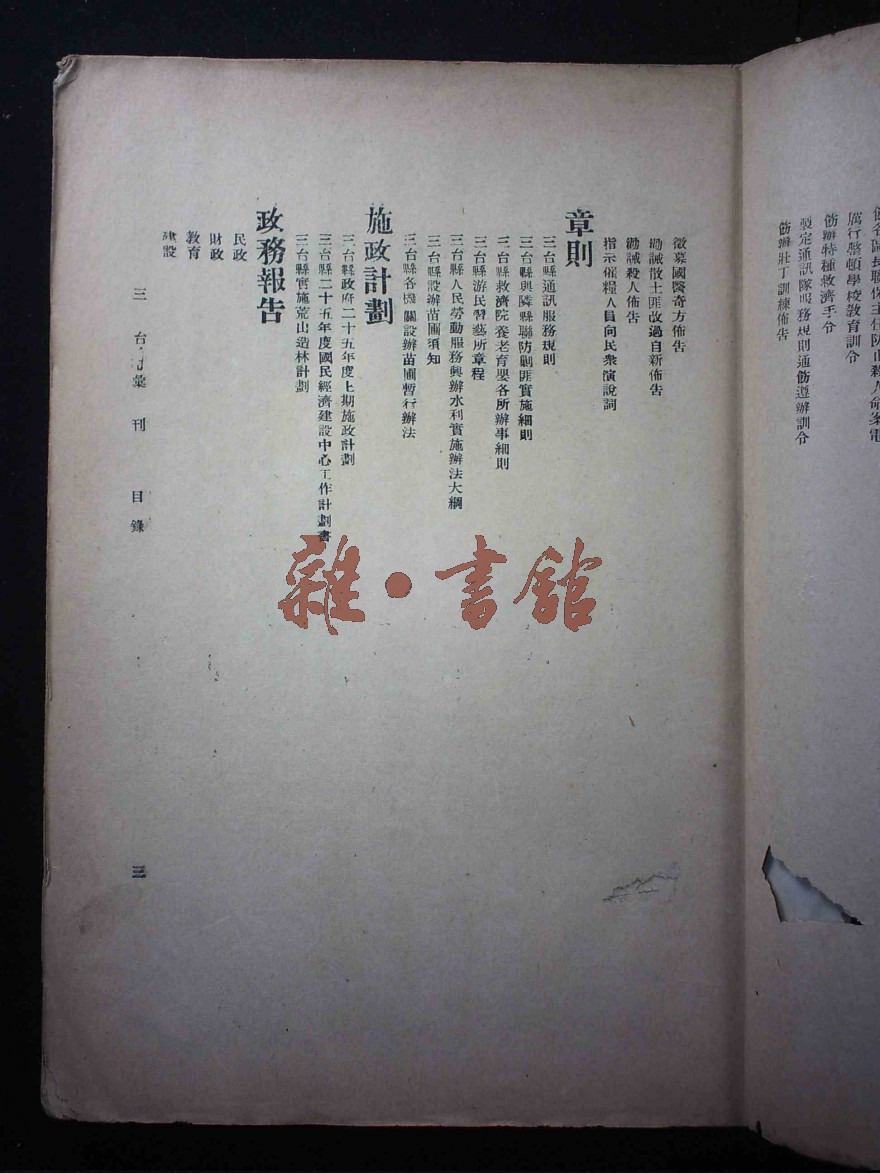 厲行整頓學校教育訓令
飭辦特種救濟手令
製定通訊隊服務規則通飭遵辦訓令
飭辦壯丁訓練佈告
徵募國醫奇方佈告
勸誡散土匪改過自新佈告
勸誡殺人佈告
指示催糧人員向民衆演說詞
章則
三台縣通訊服務規則
三台縣與隣縣聯防剿匪實施細則
三台縣救濟院養老育嬰各所辦事細則
三台縣游民習藝所章程
三台縣人民勞動服務興辦水利實施辦法大綱
三台縣設辦苗圃須知
三台縣各機關設辦苗圃暫行辦法
施政計劃
三台縣政府二十五年度上期施政計劃
三台縣二十五年度國民經濟建設中心工作計劃書
三台縣實施荒山造林計劃
政務報告
民政
財政
教育
建設
三台 彙刊 目錄
三
雜·書館